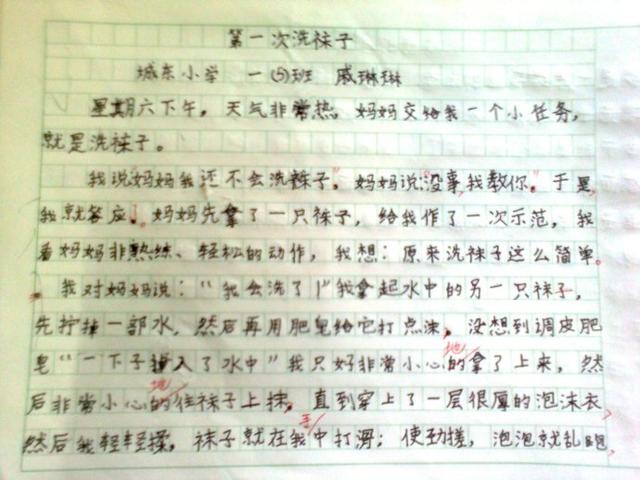 第一次洗袜子
城东小学 一(5)班 戚琳琳
星期六下午，天气非常热，妈妈交给我一个小任务，
就是洗袜子。
我说妈妈我还不会洗袜子"。妈妈说："没事，我教你。于是
我就答应了。妈妈先拿了一只袜子，给我作了一次示范，我
看妈妈非熟练、轻松的动作，我想：原来洗袜子这么简单。
我对妈妈说："我会洗了!"我拿起水中的另一只袜子，
先拧掉一部水，然后再用肥皂给它打点沫，没想到调皮肥
皂"一下子掉入了水中"我只好非常小心的地拿了上来，然
后非常小心的地往袜子上抹，直到穿上了一层很厚的泡沫衣
然后我轻轻揉，袜子就在我手中打滑；使劲搓，泡泡就乱跑